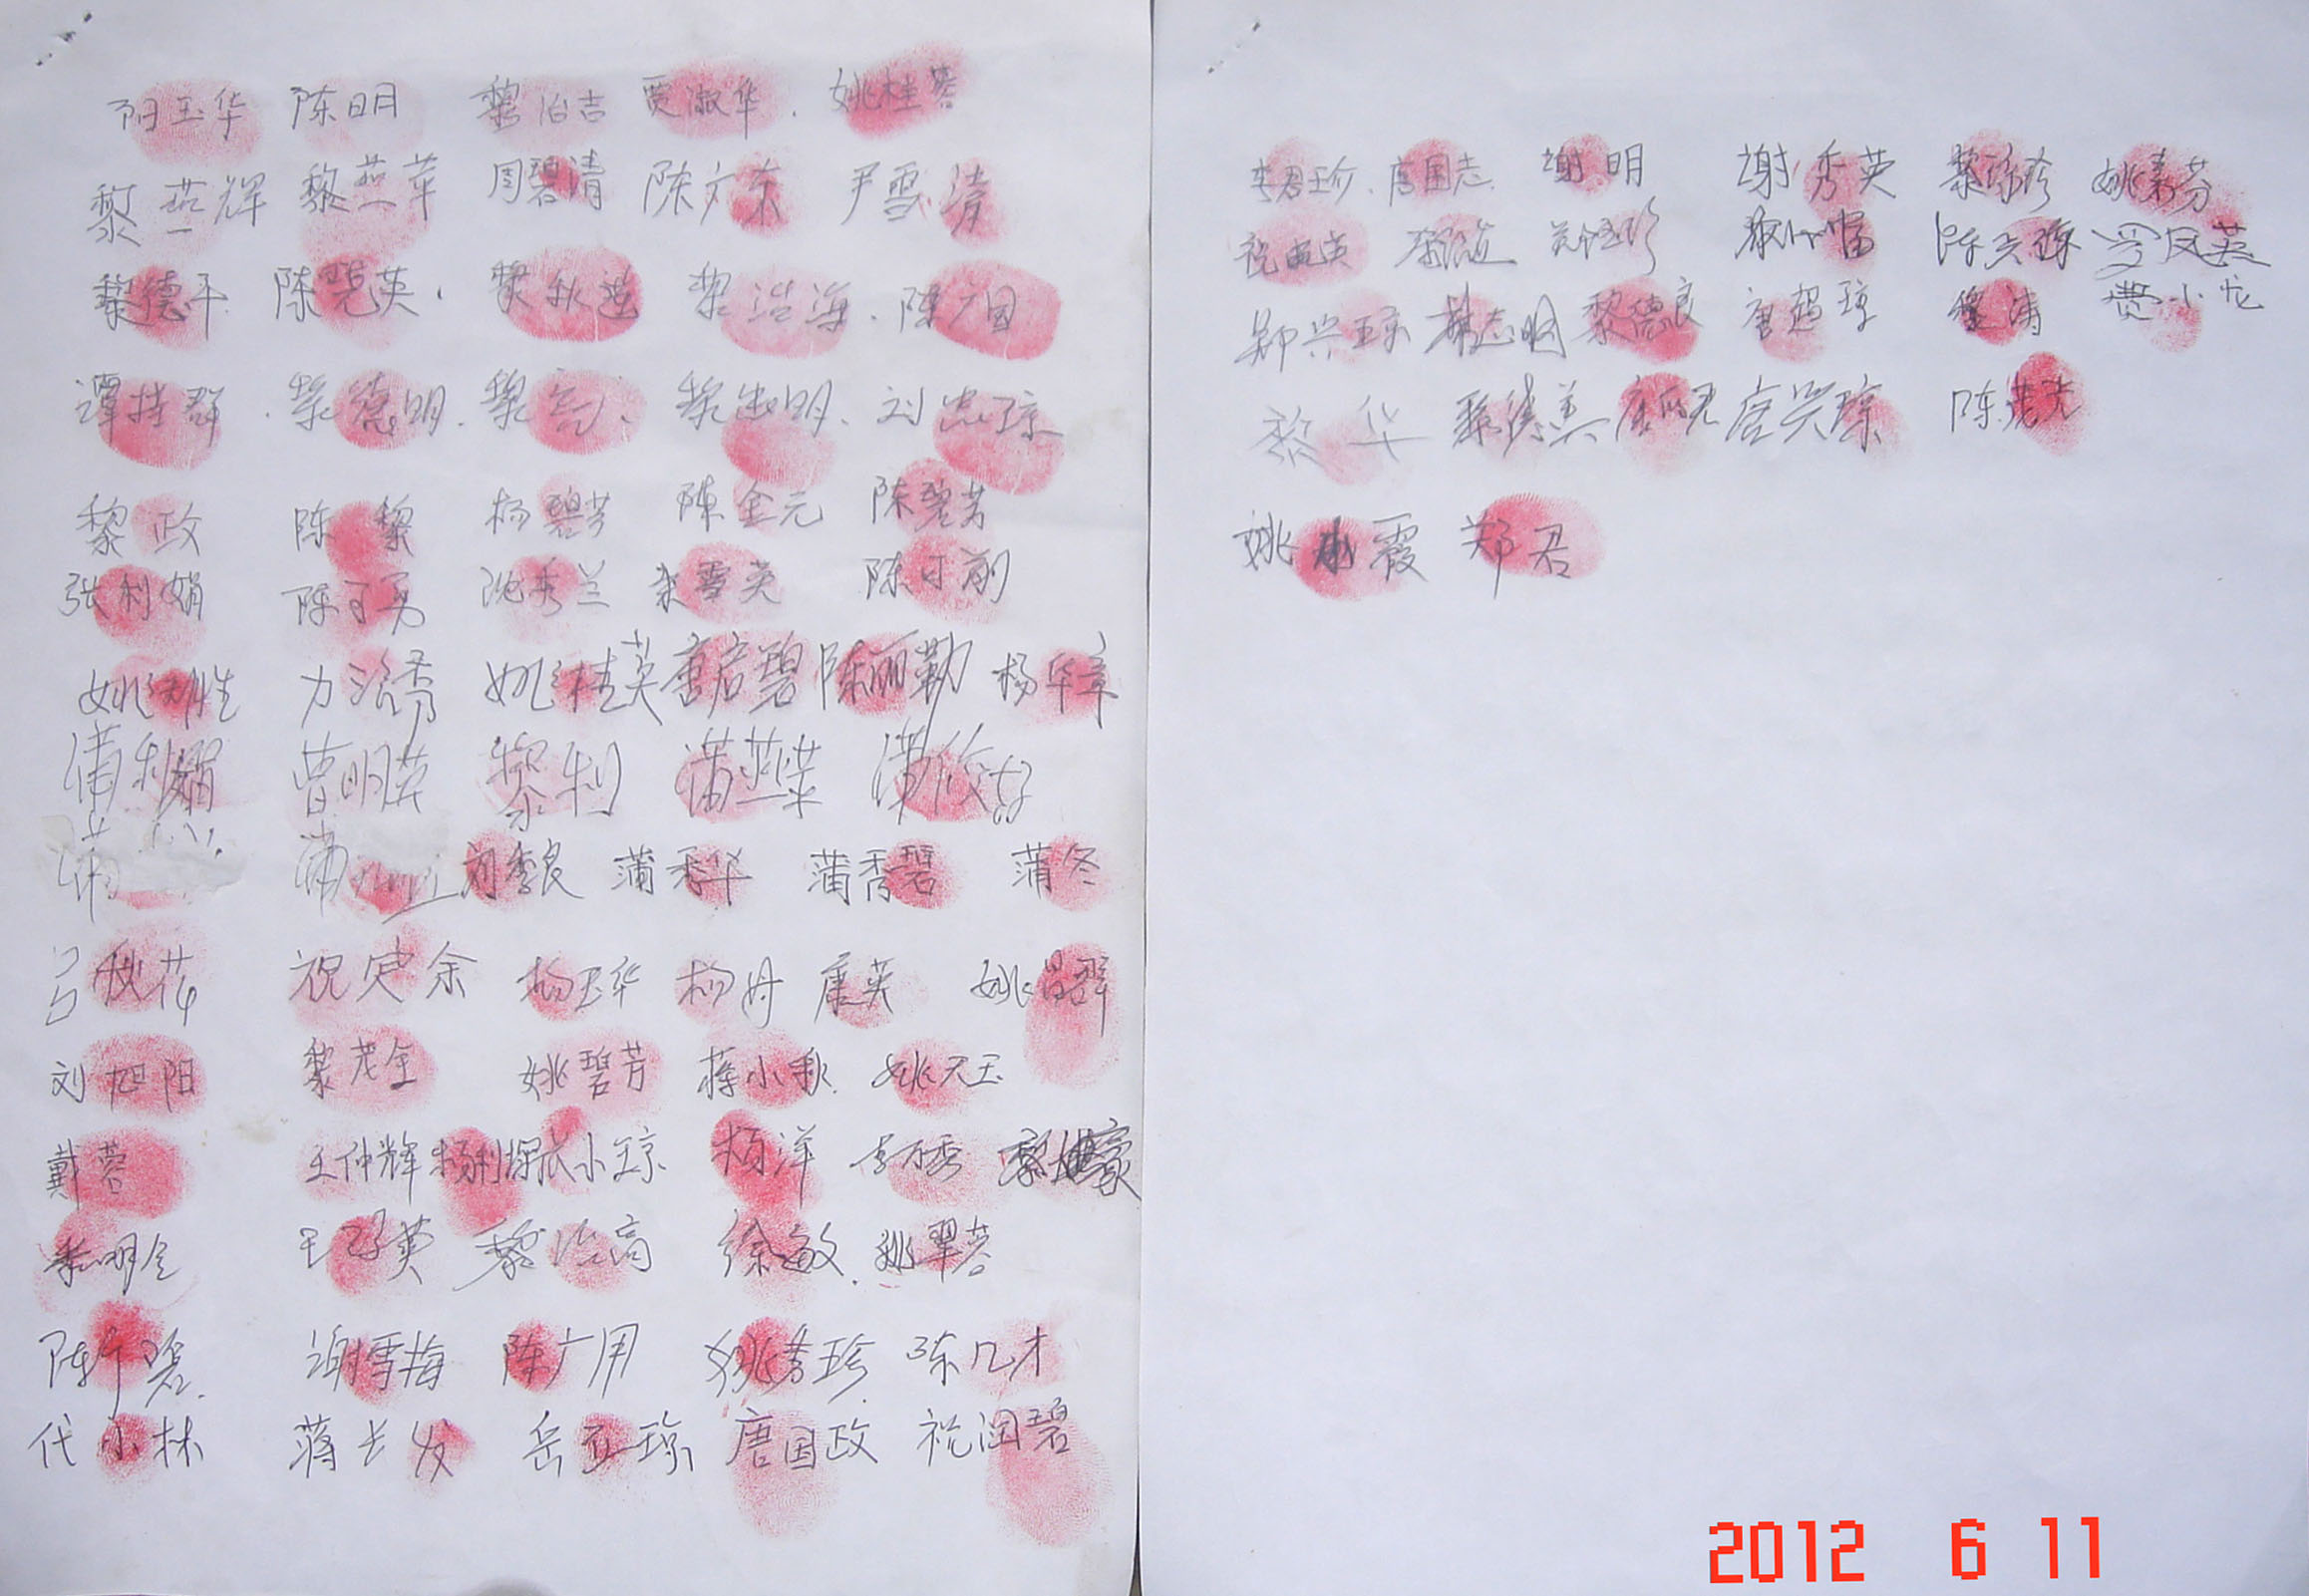 阳玉华 陈明 黎治吉 贾淑华. 姚桂蓉
黎燕辉 黎燕苹 周碧清 陈文东 尹雪清
黎德平 陈晓英. 黎秋莲 黎浩海. 陈广国
谭持群. 黎德明. 黎言. 黎忠明. 刘忠琼
黎政 陈黎 杨碧芳 陈金元 陈碧芳
张利娟 陈子勇 沈秀兰 朱雪英 陈可前
姚性 力治秀 姚桂英 唐启碧 陈丽勤 杨华章
蒲利娟 曹明英 黎利 蒲燕苹
蒲 蒲 蒲秀华 蒲秀碧 蒲冬
吕秋花 祝定余 杨玉华 杨丹 唐英 姚昌群
刘旭阳 黎茂全 姚碧芳 蒋小秋. 姚天玉
戴蓉 王仲辉 杨利琼 张小琼 杨洋 李万秀
明全 王子英 黎治高 徐敏. 姚翠蓉
陈 谢雪梅 陈广用 姚秀珍 陈几才
代小林 蒋长发 岳玉琼 唐国政 祝润碧
李君珍. 唐国志. 谢明 谢秀英 黎珍 姚素芬
祝英 陈兴琼 罗凤英
郑兴琼 志明 黎德良 唐超琼 黎涛 费小龙
黎华 黎德美 唐 唐兴琼 陈洪光
姚小霞 郑君
2012 6 11